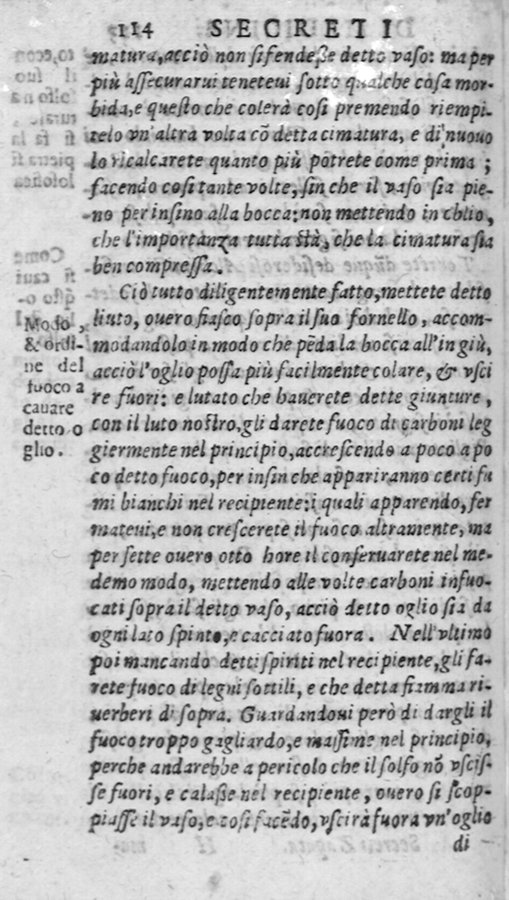 114 SECRETI
matura, acciò non si fendeße detto vaso: ma per
più assecurarui teneteui sotto qualche cosa mor-
bida, e questo che colerà così premendo riempi-
telo vn'altra volta cō detta cimatura, e di nuouo
lo ricalcarete quanto più potrete come prima;
facendo così tante volte, sin che il vaso sia pie-
no per insino alla bocca: non mettendo in oblio,
che l'importanza tutta stà, che la cimatura sia
ben compressa.
Ciò tutto diligentemente fatto, mettete detto
liuto, ouero fiasco sopra il suo fornello, accom-
modandolo in modo che pēda la bocca all'in giù,
acciò l'oglio possa più facilmente colare, & vsci
re fuori: e lutato che hauerete dette giunture,
con il luto nostro, gli darete fuoco di carboni leg
giermente nel principio, accrescendo a poco a po
co detto fuoco, per insin che appariranno certi fu
mi bianchi nel recipiente: i quali apparendo, fer
mateui, e non crescerete il fuoco altramente, ma
per sette ouero otto hore il conseruarete nel me-
demo modo, mettendo alle volte carboni infuo-
cati sopra il detto vaso, acciò detto oglio sia da
ogni lato spinto, e cacciato fuora. Nell'vltimo
poi mancando detti spiriti nel recipiente, gli fa-
rete fuoco di legni sottili, e che detta fiamma ri-
uerberi di sopra. Guardandoui però di dargli il
fuoco troppo gagliardo, e massime nel principio,
perche andarebbe a pericolo che il solfo nō vscis-
se fuori, e calaße nel recipiente, ouero si scop-
piasse il vaso, e così facēdo, vscirà fuora vn'oglio
di
Modo,
& ordi-
ne del
fuoco a
cauare
detto o
glio.